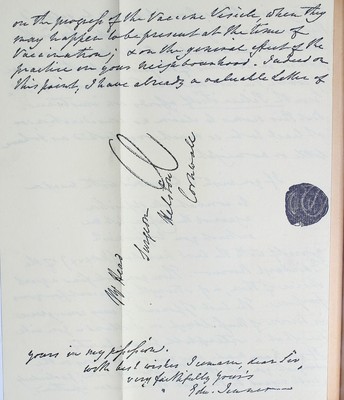 on the progress of the Vaccine Vesicle, when they
may happen to be present at the time of
Vaccination; & on the general effect of the
practice in your neighbourhood. Indeed on
this point, I have already a valuable Letter of
Mr Head
Surgeon
Helston
Cornwall
yours in my possession.
With best wishes I remain, dear Sir,
very faithfully yours
Edw. Jenner